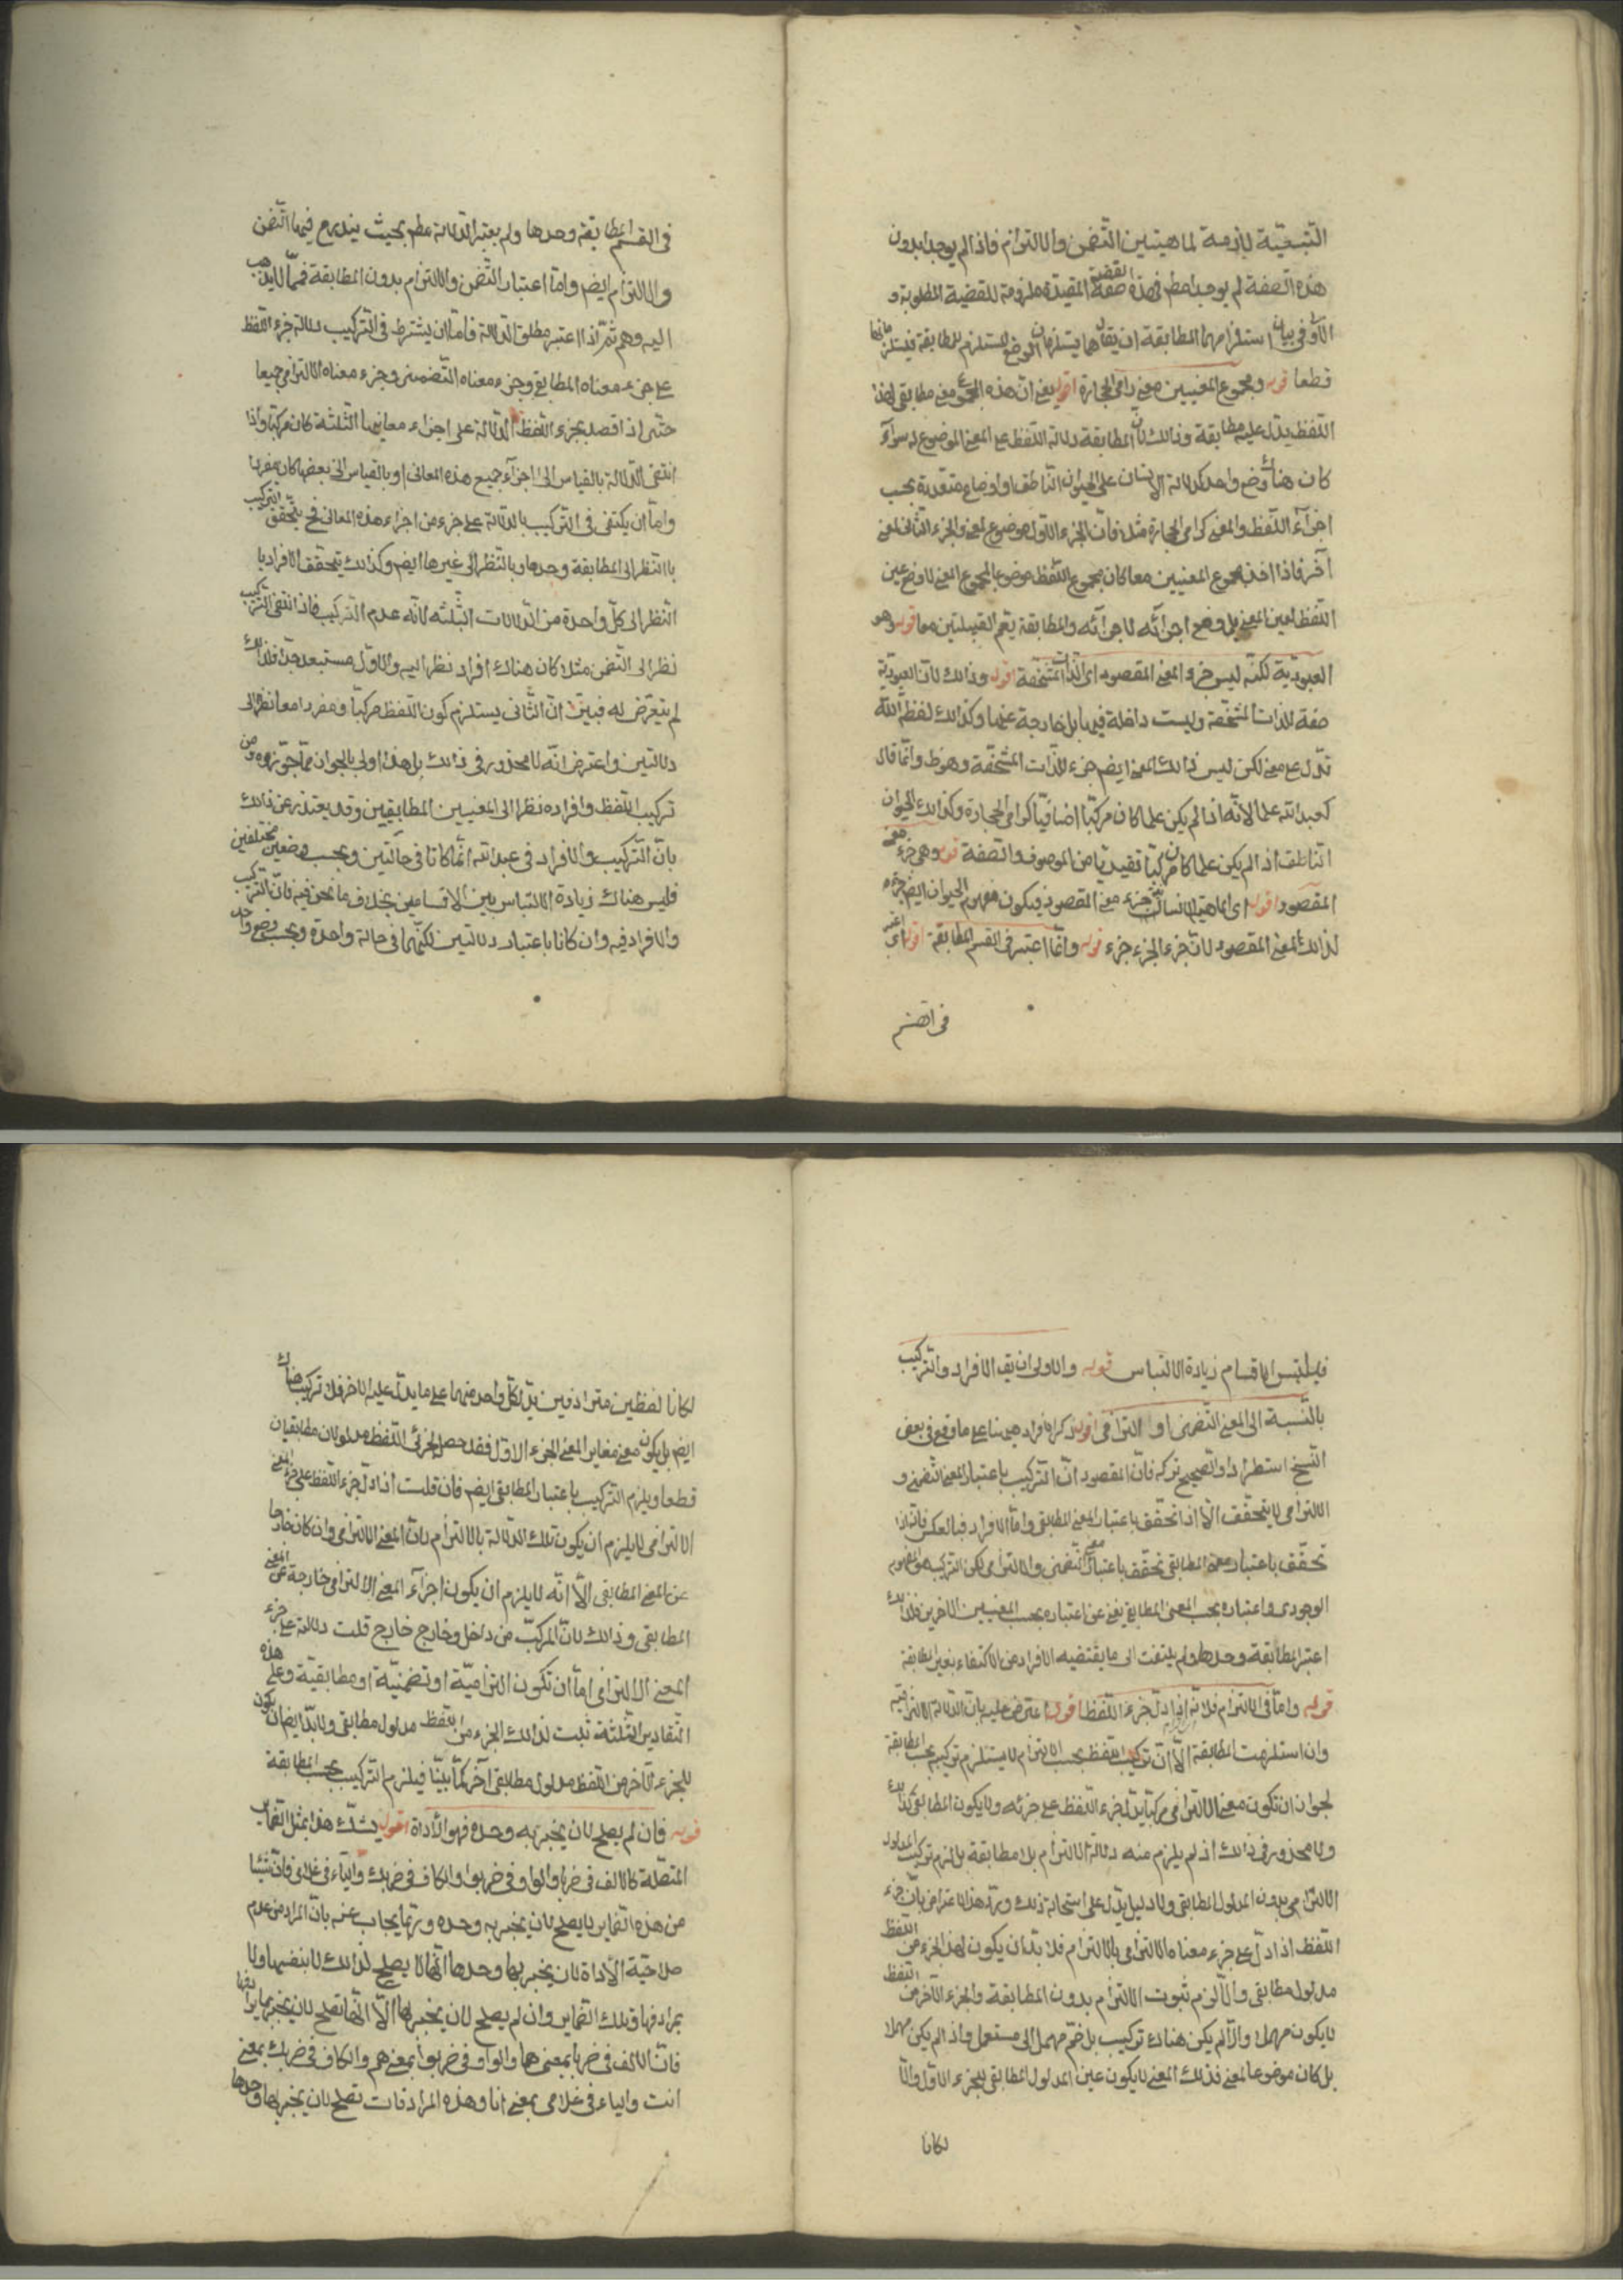 التبعية لازمة لماهيتين التضمن والالتزام فاذا لم يوجدا بدون
هذه الصفة لم يوجدا مطم فهذه القضية المقيدة ملزومة للقضية المطلوبة و
الاولى في بيان استلزامهما المطابقة ان يقال هما يستلزمان الوضع المستلزم للمطابقة فيستلزمانها
قطعا قوله ومجموع المعنيين معنى رامى الحجارة اقول يعنى ان هذه المجموع معنى مطابقى لهذا
اللفظ يدل عليه مطابقة وذالك لان المطابقة دلالة اللفظ على المعنى الموضوع له سواء
كان هناك وضع واحد كدلالة الانسان على الحيوان الناطق او اوضاع متعددة بحسب
اجزآء اللفظ والمعنى كرامى الحجارة مثلا فان الجزء الاول موضوع لمعنى والجزء الثانى لمعنى
آخر فاذا اخذ مجموع المعنيين معا كان مجموع اللفظ موضوعا لمجموع المعنى لا وضع عين
اللفظ لعين المعنى بل وضع اجزائه لاجزائه والمطابقة يعم القبيلتين معا قوله وهو
العبودية لكنه ليس جزء المعنى المقصود اى الذات المشخصة اقول وذالك لان العبودية
صفة للذات المشخصة وليست داخلة فيها بل خارجة عنها وكذالك لفظ الله
تدل على معنى لكن ليس ذالك المعنى ايضم جزء للذات المشخصة وهو ظ وانما قال
كعبد الله علما لانه اذا لم يكن علما كان مركبا اضافيا كرامى الحجارة وكذالك الحيوان
الناطق اذا لم يكن علما كان مركبا تقييديا من الموصوف والصفة قوله وهى جزء معنى
المقصود اقول اى الماهية الانسانية جزء معنى المقصود فيكون مفهوم الحيوان ايضم جزء
لذالك المعنى المقصود لان جزء الجزء جزء قوله وانما اعتبر فى القسم المطابقة اقول اى اعتبر
فى القسم
فى القسم المطابقة وحدها ولم يعتبر الدلالة مطم بحيث يندرج فيها التضمن
والالتزام ايضم واما اعتبار التضمن والالتزام بدون المطابقة فمما لا يذهب
اليه وهم ثم اذا اعتبر مطلق الدلالة فاما ان يشترط فى التركيب دلالة جزء اللفظ
على جزء معناه المطابقى وجزء معناه التضمنى وجزء معناه الالتزامى جميعا
حتى اذا قصد بجزء اللفظ الدلالة على اجزاء معانيها الثلثة كان مركبا واذا
انتفى الدلالة بالقياس الى اجزآء جميع هذه المعانى او بالقياس الى بعضها كان مفردا
واما ان يكتفى فى التركيب بالدلالة على جزء من اجزاء هذه المعانى فح يتحقق التركيب
با النظر الى المطابقة وحدها وبالنظر الى غيرها ايضم وكذلك يتحقق الافراد با
النظر الى كل واحدة من الدلالات الثلثه لانه عدم التركيب فاذا انتفى التركيب
نظرا الى التضمن مثلا كان هناك افراد نظرا اليه والاول مستبعد جدا فلذالك
لم يتعرض له فبين ان الثانى يستلزم كون اللفظ مركبا ومفردا معا نظرا الى
دلالتين واعترض انه لا محذور فى ذالك بل هذا اولى بالجواز مما جوزوه من
تركيب اللفظ وافراده نظرا الى المعنيين المطابقيين وقد يعتذر عن ذالك
بان التركيب والافراد فى عبد الله انما كانا فى حالتين وبحسب وضعين مختلفين
فليس هناك زيادة الالتباس بين الاقسام بخلاف ما نحن فيه فان التركيب
والافراد فيه وان كانا باعتبار دلالتين لكنهما فى حالة واحدة وبحسب وضع واحد
فيلتبس الاقسام زيادة الالتباس قوله والاولى ان يق الافراد والتركيب
بالنسبة الى المعنى التضمنى او الالتزامى اقول ذكر الافراد ههنا بناء على ما وقع فى بعض
النسخ استطراد والصحيح تركه فان المقصود ان التركيب باعتبار المعنى التضمنى و
الالتزامى لا يتحقق الا اذا تحقق باعتبار المعنى المطابقى واما الافراد فبالعكس فانه اذا
تحقق باعتبار معنى المطابقى تحقق باعتبار معنى التضمنى والالتزامى لكن التركيب هو المفهوم
الوجودى واعتباره بحسب المعنى المطابقى يغنى عن اعتباره بحسب المعنيين الاخرين فلذالك
اعتبر المطابقة وحدها ولم يلتفت الى ما يقتضيه الافراد من الاكتفاء بغير المطابقة
قوله واما فى الالتزام فلانه اذا دل جزء اللفظ اقول اعترض عليه بان الدلالة الالتزامية
وان استلزمت المطابقة الا ان تركيب اللفظ بحسب الالتزام لا يستلزم تركيبه بحسب المطابقة
لجواز ان تكون معنى الالتزامى مركبا يدل جزء اللفظ على جزئه ولا يكون المطابقى كذالك
ولا محذور فى ذالك اذ لم يلزم منه دلالة الالتزام بلا مطابقة بل لزم تركيب المدلول
الالتزامى بدون المدلول المطابقى ولا دليل يدل على استحالة ذلك ورد هذا الاعتراض بان جزء
اللفظ اذا دل على جزء معناه الالتزامى بالالتزام فلا بد ان يكون لهذا الجزء من اللفظ
مدلول مطابقى والا لزم ثبوت الالتزام بدون المطابقة والجزء الآخر من اللفظ
لا يكون مهملا والا لم يكن هناك تركيب بل ضم مهمل الى مستعمل واذ لم يكن مهملا
بل كان موضوعا لمعنى فذلك المعنى لا يكون عين المدلول المطابقى للجزء الاول والا
لكانا
لكانا لفظين مترادفين يدل كل واحد منهما على ما يدل عليه الاخر فلا تركيب هناك
ايضم بل يكون معنى مغاير المعنى الجزء الاول فقد حصل لجزئى اللفظ مدلولان مطابقيان
قطعا ويلزم التركيب باعتبار المطابقى ايضم فان قلت اذا دل جزء اللفظ على جزء المعنى
الالتزامى لا يلزم ان يكون تلك الدلالة بالالتزام لان المعنى الالتزامى وان كان خارجا
عن المعنى المطابقى الا انه لا يلزم ان يكون اجزآء المعنى الالتزامى خارجة عن المعنى
المطابقى وذالك لان المركب من داخل وخارج خارج قلت دلالة على جزء
المعنى الالتزامى اما ان تكون التزامية او تضمنية او مطابقية وعلى هذه
التقادير الثلثة ثبت لذالك الجزء من اللفظ مدلول مطابقى ولا بد ايضا ان يكون
للجزء الآخر من اللفظ مدلول مطابقى آخر كما بينا فيلزم التركيب بحسب المطابقة
قوله فان لم يصلح لان يخبر به وحده فهو الأداة اقول يشكل هذا بمثل الضماير
المتصلة كالالف فى ضربا والواو فى ضربوا والكاف فى ضربك والياء فى غلامى فان شيئا
من هذه الضماير لا يصلح لان يخبر به وحده وربما يجاب عنه بان المراد من عدم
صلاحية الأداة لان يخبر بها وحدها انها لا يصلح لذالك لا بنفسها ولا
بمرادفها وتلك الضماير وان لم يصلح لان يخبر بها الا انها تصلح لان يخبر بما يرادفها
فان الالف فى ضربا بمعنى هما والواو فى ضربوا بمعنى هم والكاف فى ضربك بمعنى
انت والياء فى غلامى بمعنى انا وهذه المرادفات تصلح لان يخبر بها وحدها